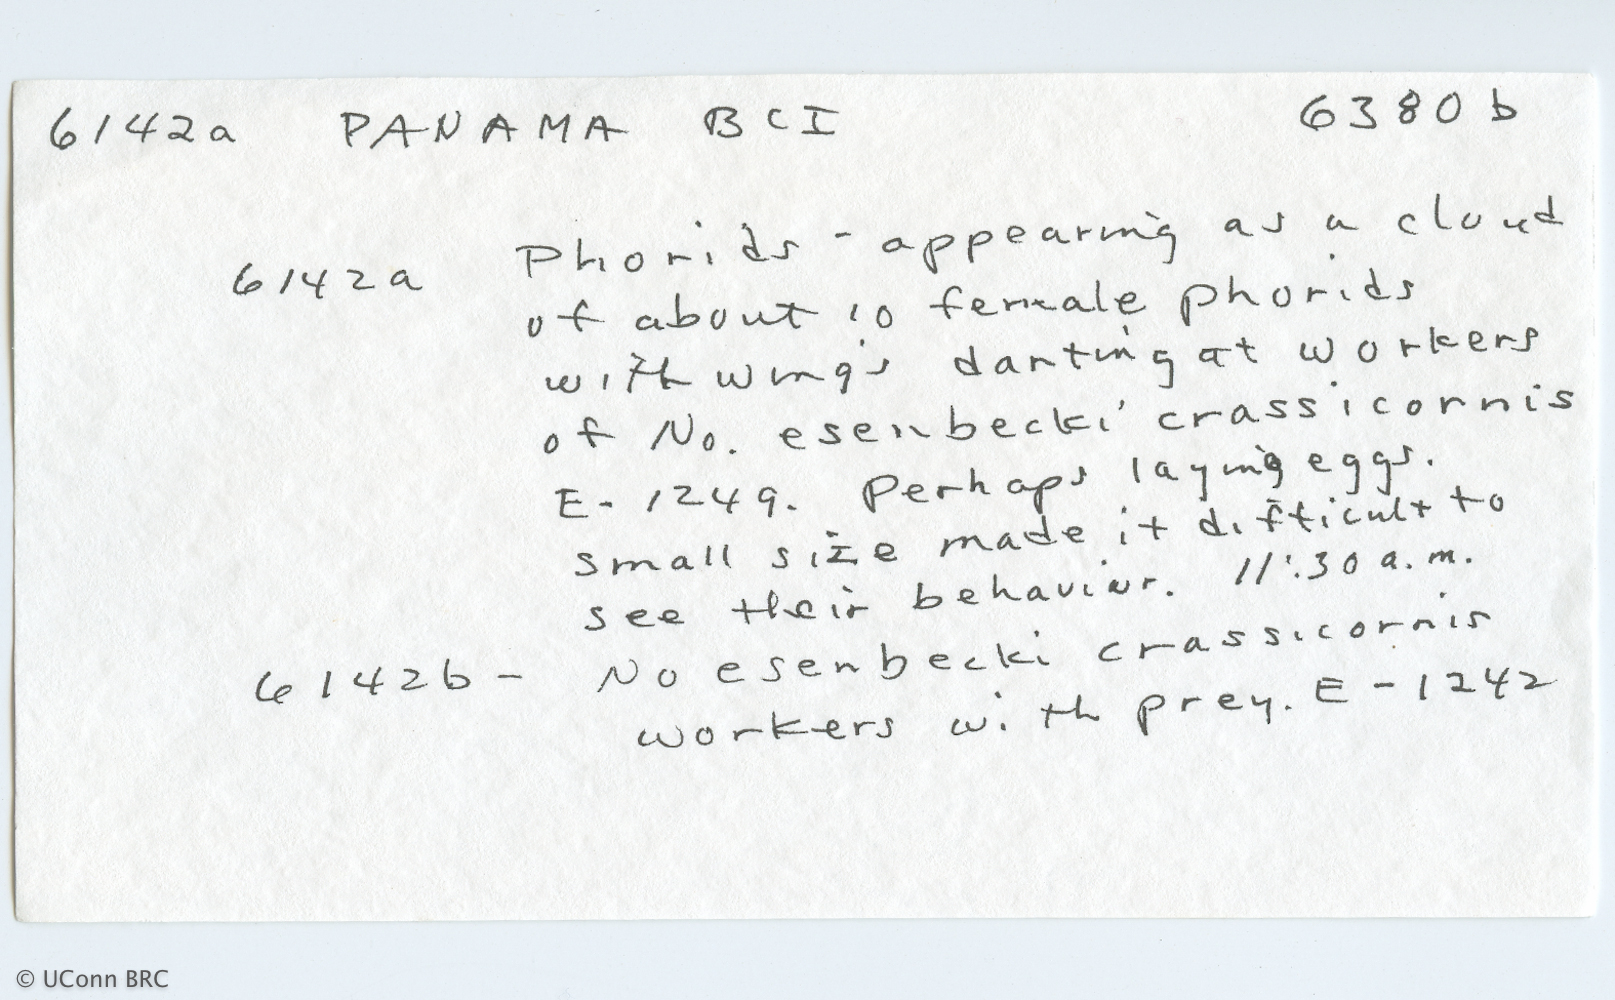 6142a PANAMA BCI 6380b
6142a Phorids - appearing as a cloud
of about 10 female phorids
with wings darting at workers
of No. esenbecki crassicornis
E-1249. Perhaps laying eggs.
small size made it difficult to
see their behavior. 11:30 a.m.
6142b - No esenbecki crassicornis
workers with prey. E-1242
© UConn BRC